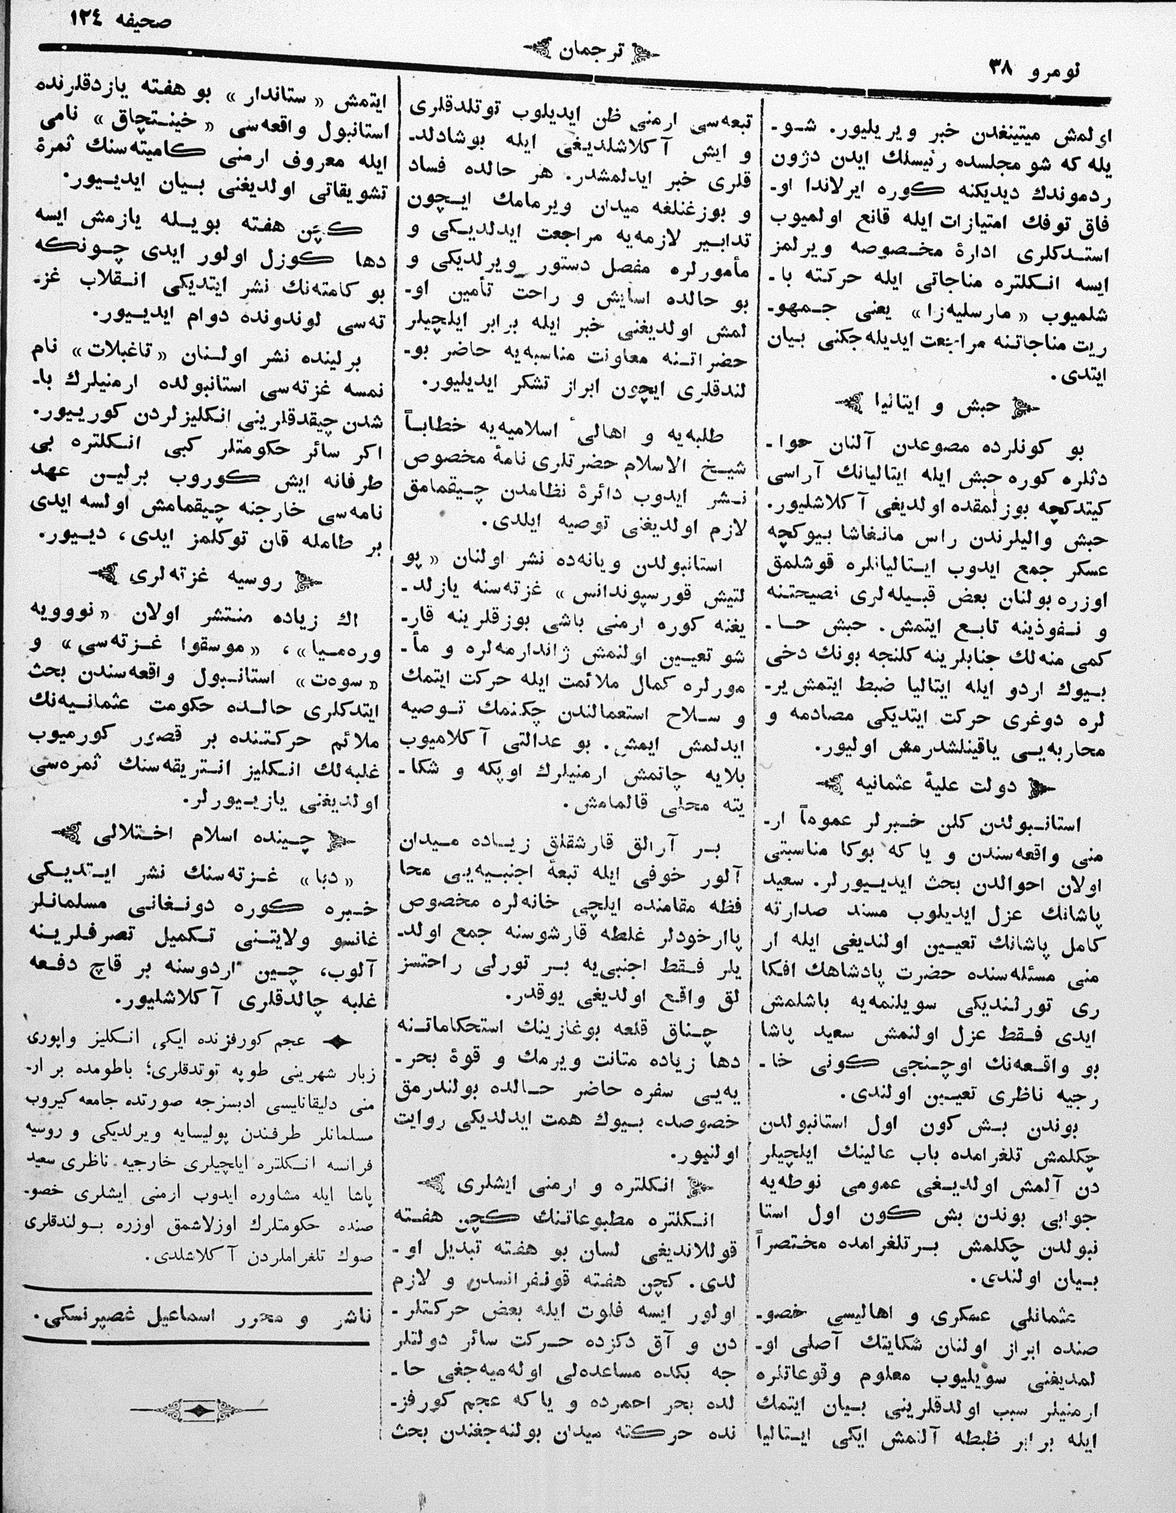 صحیفه ١٢٤
ترجمان
نومرو ٣٨
اولمش میتینغدن خبر ویریلیور. شو-
یله که شو مجلسده رئیسلك ایدن دژون
ردموندك دیدیکنه کوره ایرلاندا او-
فاق توفك امتیازات ایله قانع اولمیوب
استدکلری ادارهٔ مخصوصه ویرلمز
ایسه انکلتره مناجاتی ایله حرکته با-
شلمیوب «مارسلیه‌زا» یعنی جمهو-
ریت مناجاتنه مراجعت ایدیله‌جکنی بیان
ایتدی.
حبش و ایتالیا
بو کونلرده مصوعدن آلنان حوا-
دثلره کوره حبش ایله ایتالیانك آراسی
کیتدکچه بوزلمقده اولدیغی آکلاشلیور.
حبش والیلرندن راس مانغاشا بیوکچه
عسکر جمع ایدوب ایتالیانلره قوشلمق
اوزره بولنان بعض قبیله‌لری نصیحتنه
و نفوذینه تابع ایتمش. حبش حا-
کمی منه‌لك جنابلرینه کلنجه بونك دخی
بیوك اردو ایله ایتالیا ضبط ایتمش یر-
لره دوغری حرکت ایتدیکی مصادمه و
محاربه‌یی یاقینلشدرمش اولیور.
دولت علیهٔ عثمانیه
استانبولدن کلن خبرلر عموماً ار-
منی واقعه‌سندن و یا که بوکا مناسبتی
اولان احوالدن بحث ایدییورلر. سعید
پاشانك عزل ایدیلوب مسند صدارته
کامل پاشانك تعیین اولندیغی ایله ار
منی مسئله‌سنده حضرت پادشاهك افکا
ری تورلندیکی سویلنمه‌یه باشلمش
ایدی فقط عزل اولنمش سعید پاشا
بو واقعه‌نك اوچنجی کونی خا-
رجیه ناظری تعیین اولندی.
بوندن بش کون اول استانبولدن
چکلمش تلغرامده باب عالینك ایلچیلر
دن آلمش اولدیغی عمومی نوطه‌یه
جوابی بوندن بش کون اول استا
نبولدن چکلمش برتلغرامده مختصراً
بیان اولندی.
عثمانلی عسکری و اهالیسی خصو-
صنده ابراز اولنان شکایتك آصلی او-
لمدیغنی سویلیوب معلوم وقوعاتلره
ارمنیلر سبب اولدقلرینی بیان ایتمك
ایله برابر ظبطه آلنمش ایکی ایتالیا
تبعه‌سی ارمنی ظن ایدیلوب توتلدقلری
و ایش آکلاشلدیغی ایله بوشادلد-
قلری خبر ایدلمشدر. هر حالده فساد
و بوزغنلغه میدان ویرمامك ایچون
تدابیر لازمه‌یه مراجعت ایدلدیکی و
مأمورلره مفصل دستور ویرلدیکی و
بو حالده اسایش و راحت تأمین او-
لمش اولدیغنی خبر ایله برابر ایلچیلر
حضراتنه معاونت مناسبه‌یه حاضر بو-
لندقلری ایچون ابراز تشکر ایدیلیور.
طلبه‌یه و اهالیٔ اسلامیه‌یه خطاباً
شیخ الاسلام حضرتلری نامهٔ مخصوص
نشر ایدوب دائرهٔ نظامدن چیقمامق
لازم اولدیغنی توصیه ایلدی.
استانبولدن ویانه‌ده نشر اولنان «پو
لتیش قورسپوندانس» غزته‌سنه یازلد-
یغنه کوره ارمنی باشی بوزقلرینه قار-
شو تعیین اولنمش ژاندارمه‌لره و مأ-
مورلره کمال ملائمت ایله حرکت ایتمك
و سلاح استعمالندن چکنمك توصیه
ایدلمش ایمش. بو عدالتی آکلامیوب
بلایه چاتمش ارمنیلرك اوپکه و شکا-
یته محلی قالمامش.
بر آرالق قارشقلق زیاده میدان
آلور خوفی ایله تبعهٔ اجنبیه‌یی محا
فظه مقامنده ایلچی خانه‌لره مخصوص
پاارخودلر غلطه قارشوسنه جمع اولد-
یلر فقط اجنبی‌یه بر تورلی راحتسز
لق واقع اولدیغی یوقدر.
چناق قلعه بوغازینك استحکاماتنه
دها زیاده متانت ویرمك و قوهٔ بحر-
یه‌یی سفره حاضر حالده بولندرمق
خصوصده بیوك همت ایدلدیکی روایت
اولنیور.
انکلتره و ارمنی ایشلری
انکلتره مطبوعاتنك کچن هفته
قوللاندیغی لسان بو هفته تبدیل او-
لدی. کچن هفته قونفرانسدن و لازم
اولور ایسه فلوت ایله بعض حرکتلر-
دن و آق دکزده حرکت سائر دولتلر
جه بکده مساعده‌لی اوله‌میه‌جغی حا-
لده بحر احمرده و یا که عجم کورفز-
نده حرکته میدان بولنه‌جغندن بحث
ایتمش «ستاندار» بو هفته یازدقلرنده
استانبول واقعه‌سی «خینتچاق» نامی
ایله معروف ارمنی کامیته‌سنك ثمرهٔ
تشویقاتی اولدیغنی بیان ایدییور.
کچن هفته بویله یازمش ایسه
دها کوزل اولور ایدی چونکه
بو کامته‌نك نشر ایتدیکی انقلاب غز-
ته‌سی لوندونده دوام ایدییور.
برلینده نشر اولنان «تاغبلات» نام
نمسه غزته‌سی استانبولده ارمنیلرك با-
شدن چیقدقلرینی انکلیزلردن کورییور.
اکر سائر حکومتلر کبی انکلتره بی
طرفانه ایش کوروب برلین عهد
نامه‌سی خارجنه چیقمامش اولسه ایدی
بر طامله قان توکلمز ایدی، دییور.
روسیه غزته‌لری
اك زیاده منتشر اولان «نووویه
وره‌میا»، «موسقوا غزته‌سی» و
«سوه‌ت» استانبول واقعه‌سندن بحث
ایتدکلری حالده حکومت عثمانیه‌نك
ملائم حرکتنده بر قصور کورمیوب
غلبه‌لك انکلیز انتریقه‌سنك ثمره‌سی
اولدیغنی یازیورلر.
چینده اسلام اختلالی
«دبا» غزته‌سنك نشر ایتدیکی
خبره کوره دونغانی مسلمانلر
غانسو ولایتنی تکمیل تصرفلرینه
آلوب، چین اردوسنه بر قاچ دفعه
غلبه چالدقلری آکلاشلیور.
عجم کورفزنده ایکی انکلیز واپوری
زبار شهرینی طوپه توتدقلری؛ باطومده بر ار-
منی دلیقانلیسی ادبسزجه صورتده جامعه کیروب
مسلمانلر طرفندن پولیسایه ویرلدیکی و روسیه
فرانسه انکلتره ایلچیلری خارجیه ناظری سعید
پاشا ایله مشاوره ایدوب ارمنی ایشلری خصو-
صنده حکومتلرك اوزلاشمق اوزره بولندقلری
صوك تلغراملردن آکلاشلدی.
ناشر و محرر اسماعیل غصپرنسکی.